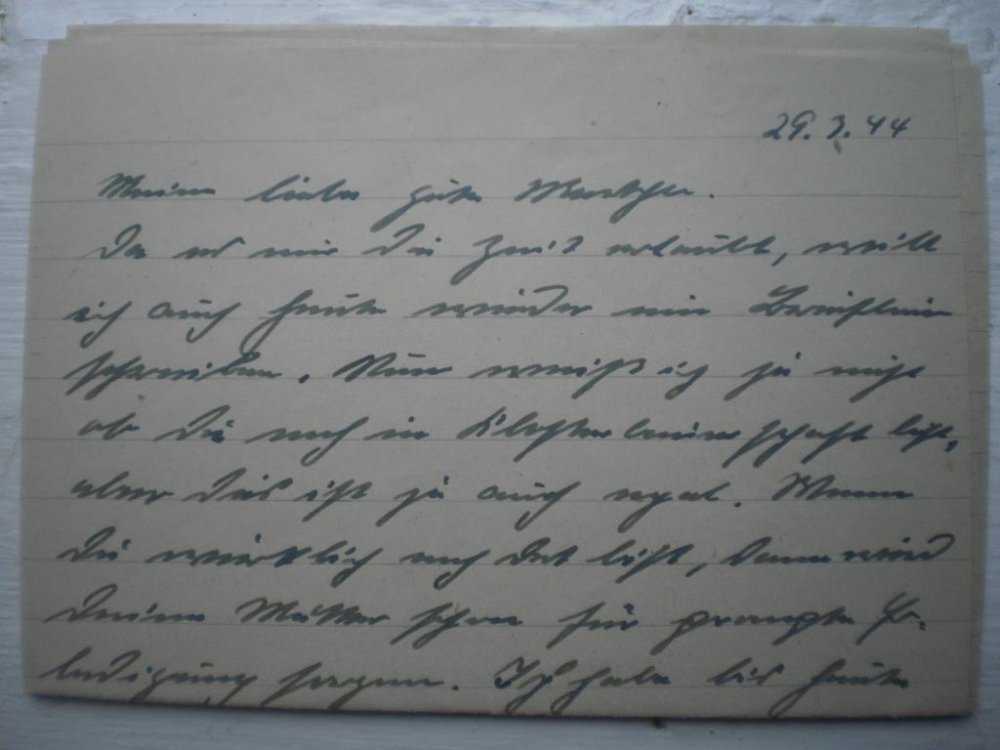 29. 3. 44
Meine liebe gute
Da es mir die Zeit erlaubt, will
ich auch heute wieder ein Brieflein
schreiben. Nun weiß ich ja nicht
ob Du noch in bist,
aber das ist ja auch egal. Wenn
Du wirklich noch dort bist, dann wird
Deine Mutter schon für prompte Er-
ledigung sorgen. Ich habe bis heute